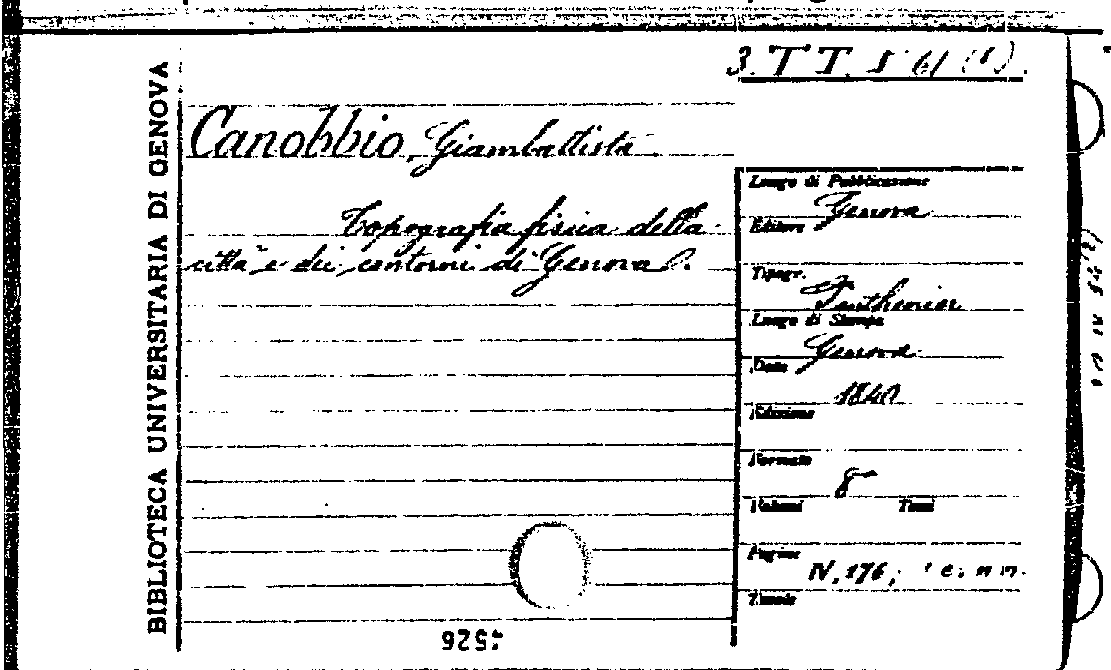 3. T T. 5 61 (1).
BIBLIOTECA UNIVERSITARIA DI GENOVA
Canobbio Giambattista
Topografia fisica della
città e dei contorni di Genova.
Luogo di Pubblicazione
Genova
Editore
Tipogr.
Ponthenier
Luogo di Stampa
Genova
Data
1840
Edizione
Formato
8°
Volumi Tomi
Pagine
IV, 176,